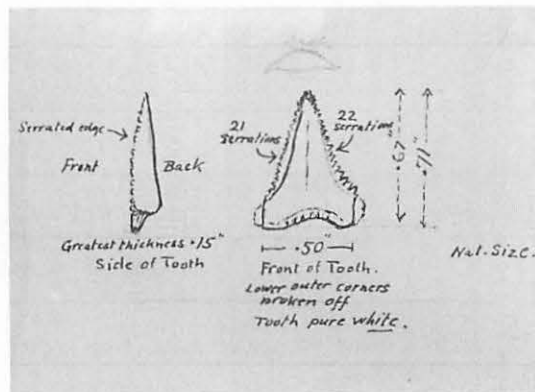 Serrated edge
Front
Back
Greatest thickness .15"
Side of Tooth
21
serrations
22
serrations
.67"
.71"
.50"
Front of Tooth.
Lower outer corners
broken off
Tooth pure white.
Nat. Size.